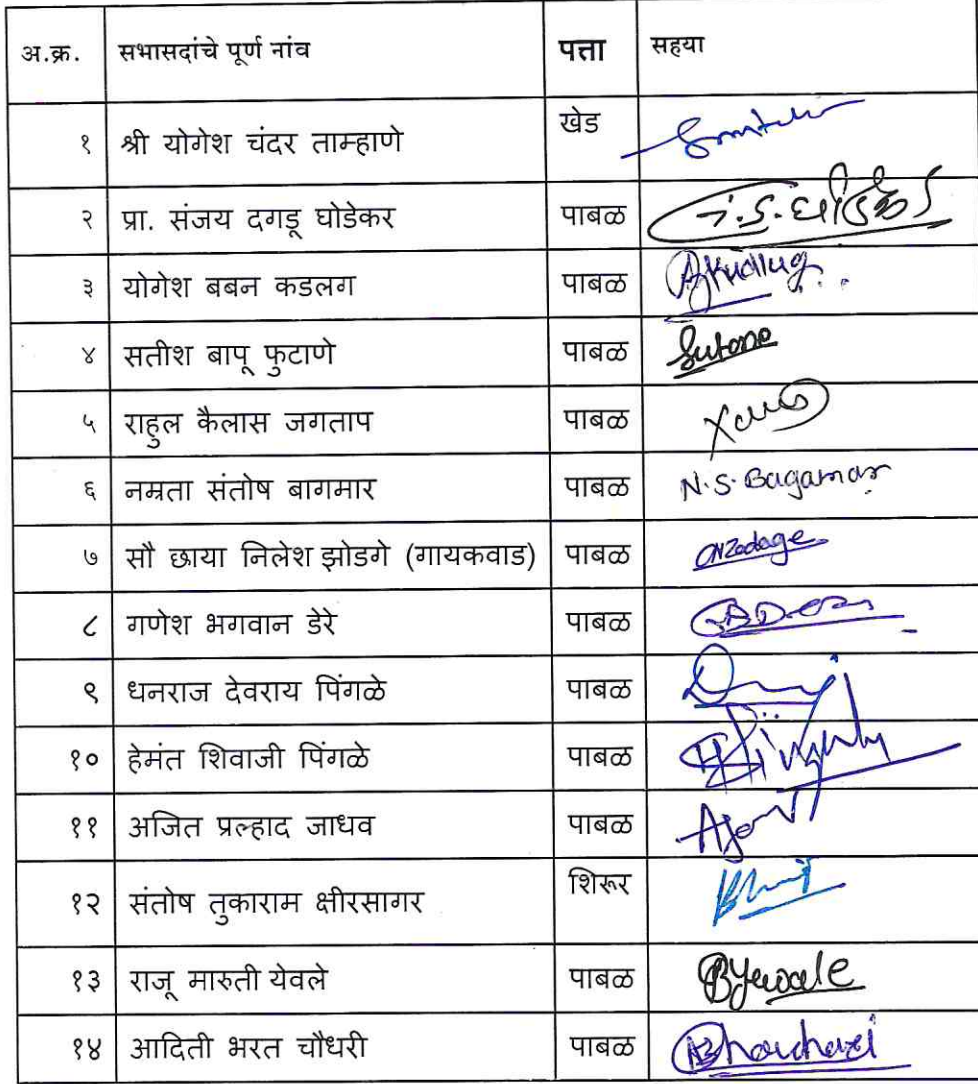 अ.क्र. सभासदांचे पूर्ण नांव पत्ता सहया
१ श्री योगेश चंदर ताम्हाणे खेड
२ प्रा. संजय दगडू घोडेकर पाबळ
३ योगेश बबन कडलग पाबळ
४ सतीश बापू फुटाणे पाबळ
५ राहुल कैलास जगताप पाबळ
६ नम्रता संतोष बागमार पाबळ N.S. Bagamar
७ सौ छाया निलेश झोडगे (गायकवाड) पाबळ
८ गणेश भगवान डेरे पाबळ
९ धनराज देवराय पिंगळे पाबळ
१० हेमंत शिवाजी पिंगळे पाबळ
११ अजित प्रल्हाद जाधव पाबळ
१२ संतोष तुकाराम क्षीरसागर शिरूर
१३ राजू मारुती येवले पाबळ
१४ आदिती भरत चौधरी पाबळ